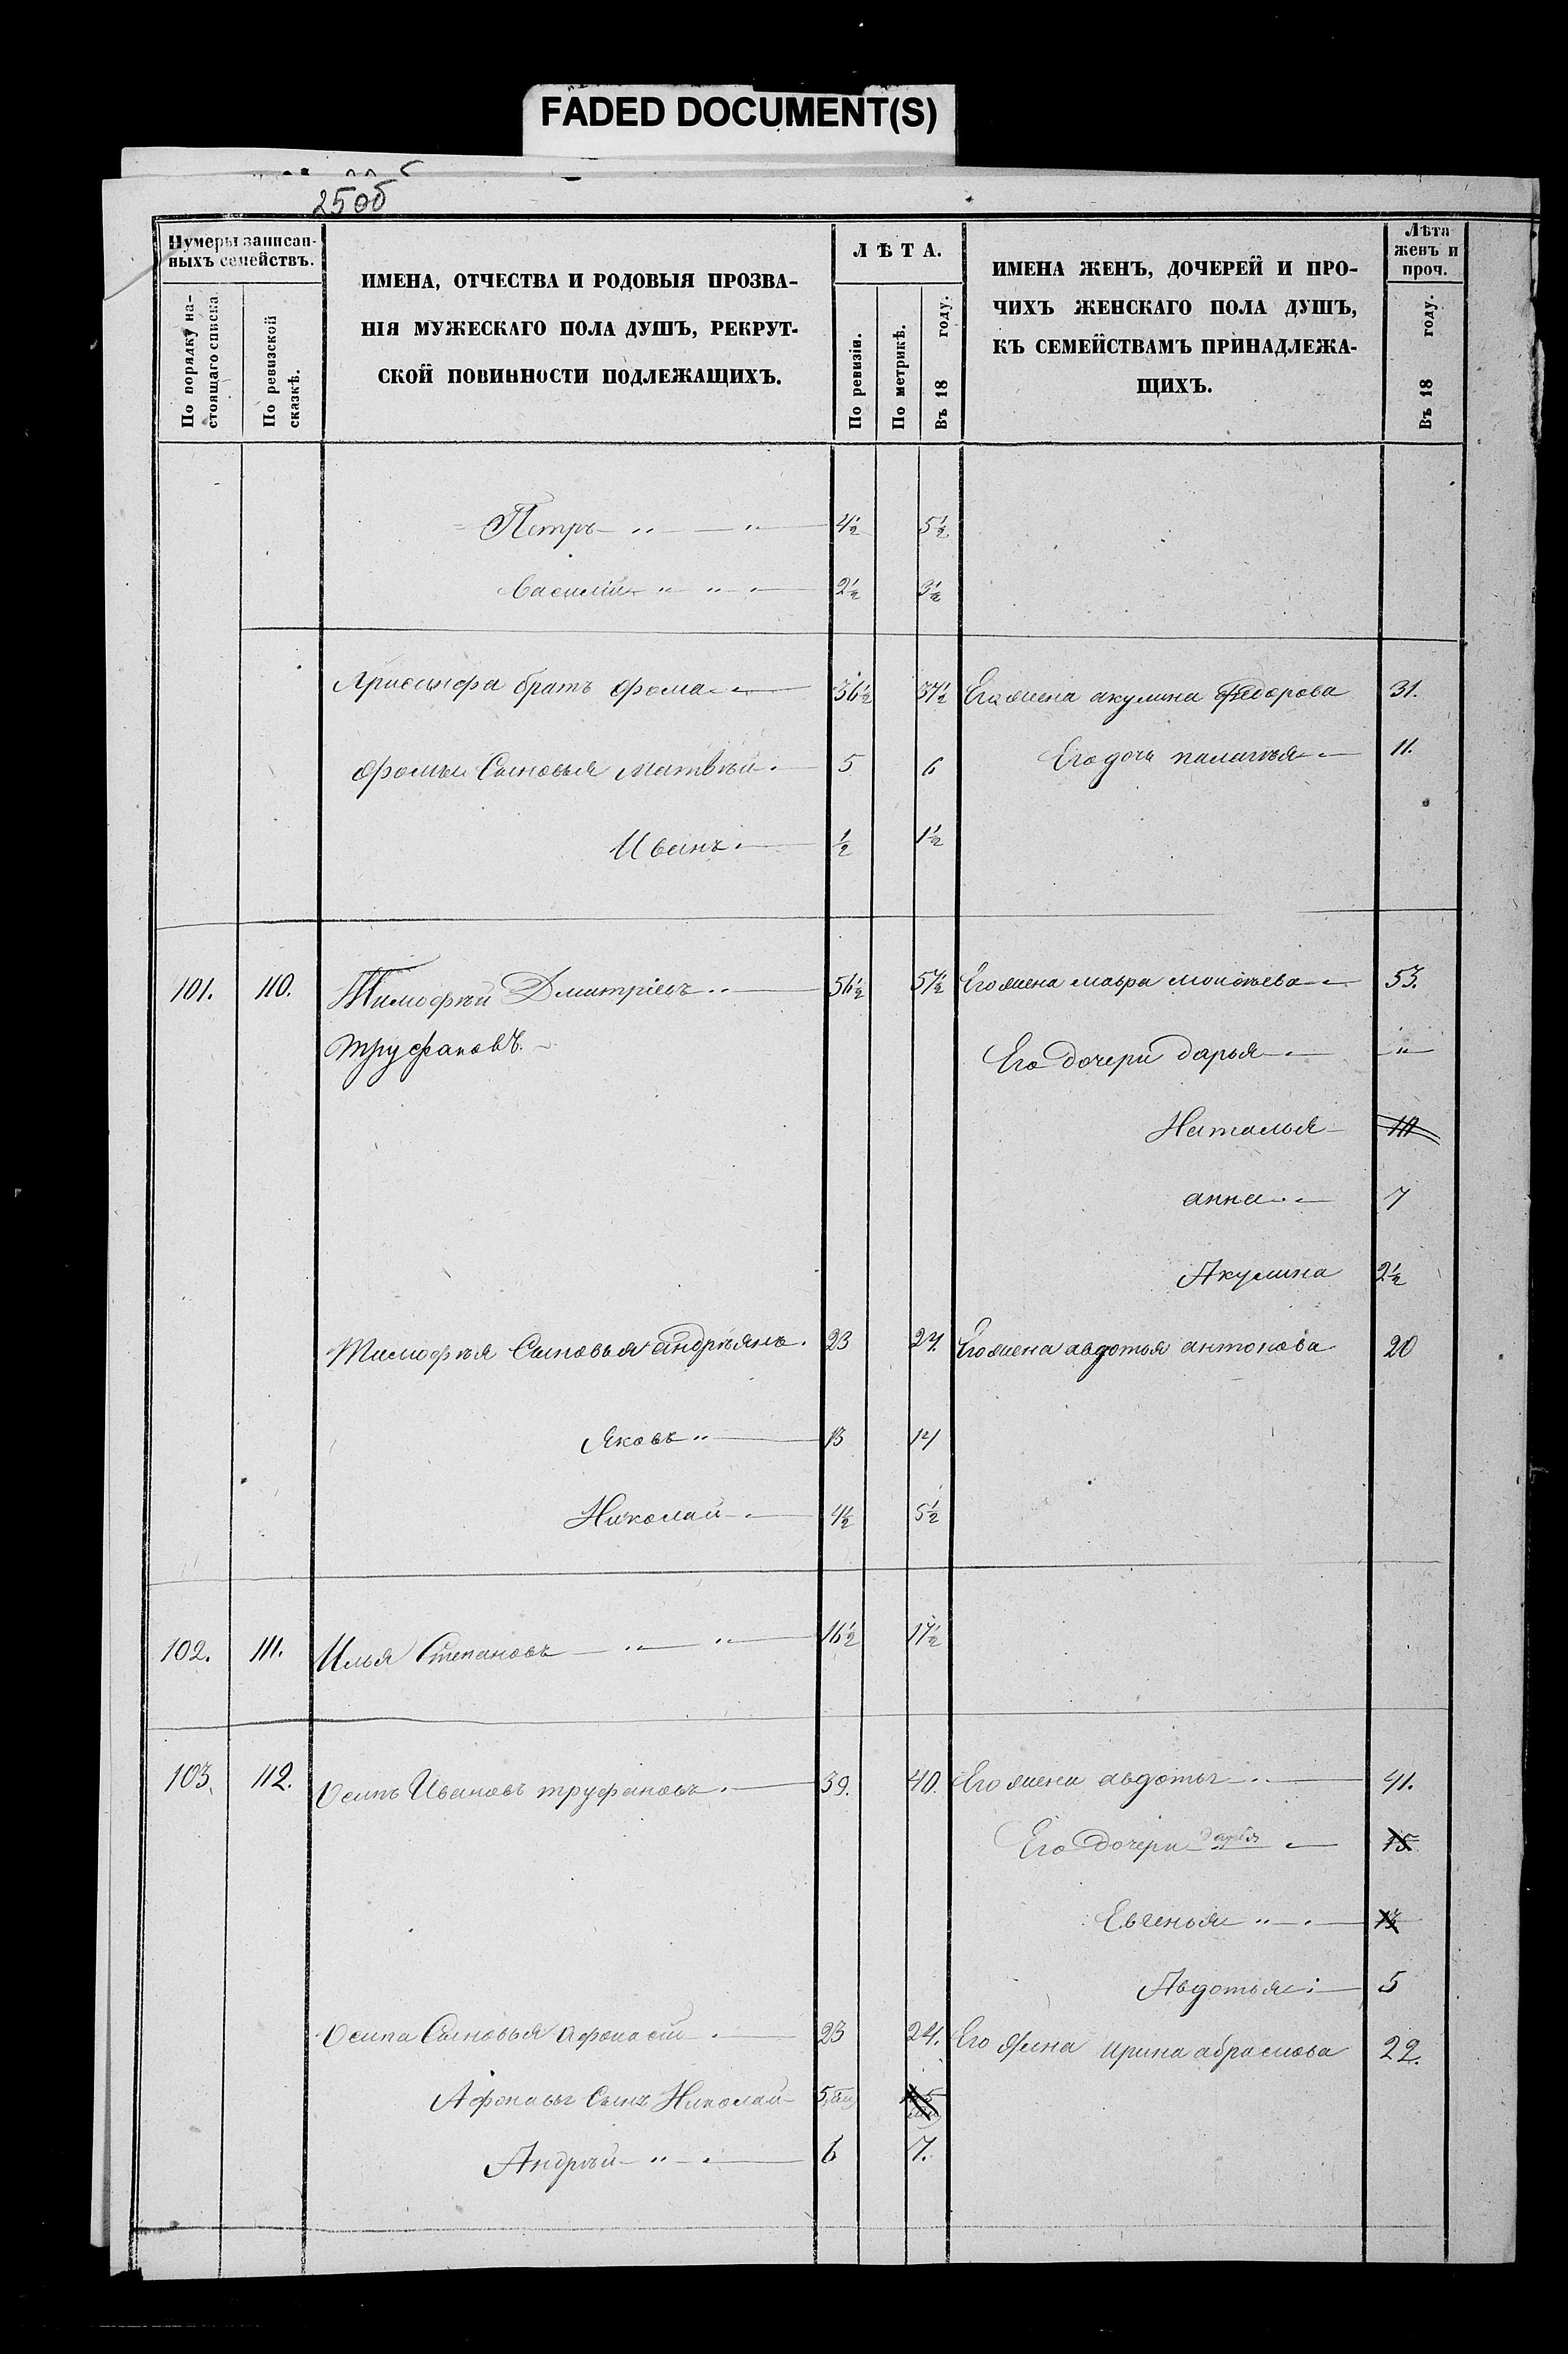 FADED DOCUMENT(S)
250б
Нумеры записан-
ныхъ семействъ.
По порядку на-
стоящаго списка.
По ревизской
сказкѣ.
ИМЕНА, ОТЧЕСТВА И РОДОВЫЯ ПРОЗВА-
НІЯ МУЖЕСКАГО ПОЛА ДУШЪ, РЕКРУТ-
СКОЙ ПОВИННОСТИ ПОДЛЕЖАЩИХЪ.
ЛѢТА.
По ревизіи.
По метрикѣ.
Въ 18 году.
ИМЕНА ЖЕНЪ, ДОЧЕРЕЙ И ПРО-
ЧИХЪ ЖЕНСКАГО ПОЛА ДУШЪ,
КЪ СЕМЕЙСТВАМЪ ПРИНАДЛЕЖА-
ЩИХЪ.
Лѣта
женъ и
проч.
Въ 18 году.
Петръ 4½ 5½
Василій 2½ 3½
брать Фома 36½ 37½ Его жена акулина Федорова 31.
Фомы Сыновья Матвѣй 5 6 Его дочь палагѣя 11.
Иванъ ½ 1½
101. 110. Тимофѣй Дмитріевъ 56½ 57½ Его жена мавра 53.
Труфановъ.
Его дочери дарья "
Наталья
анна 7
Акулина 2½
Тимофѣя Сыновья андрѣянъ. 23 24. Его жена авдотья антонова 20
Яковъ 13 14
Николай 4½ 5½
102. 111. Илья Степановъ 16½ 17½
103. 112. Осипъ Ивановъ труфановъ. 39. 40. Его жена авдотья 41.
Его дочери дарья 15
Евгенья 13
Авдотья 5
Осипа Сыновья афонасій 23 24. Его жена ирина абрамова 22.
Сынъ Николай
Андрѣй 6 7.